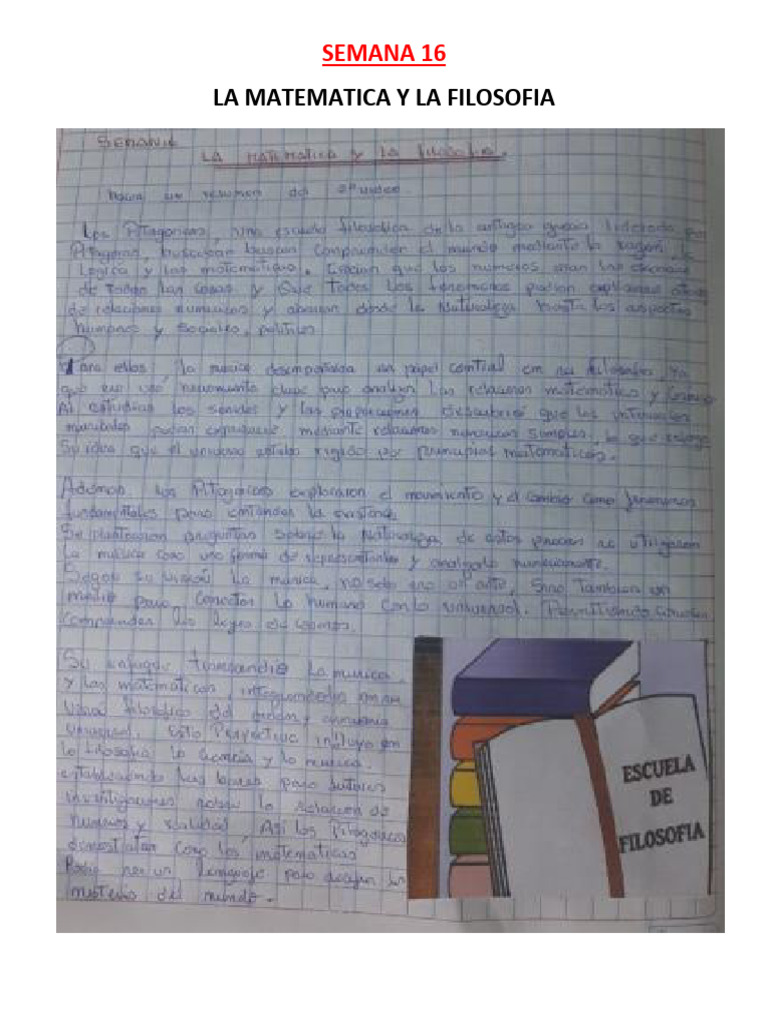 SEMANA 16
LA MATEMATICA Y LA FILOSOFIA
LA MATEMATICA Y LA FILOSOFIA.
un resumen del
Los Pitagoricos, una escuela filosofica de la antigua grecia liderada por
Pitagoras, buscaban comprender el mundo mediante la razon, la
Logica y las matematicas. Creian que los numeros eran las
de todas las cosas y que todos los fenomenos podian
de relaciones numericas y desde la Naturaleza hasta los aspectos
humanos y Sociales, politicos
Para ellos, la musica desempeñaba un papel central en su filosofia, ya
que era una herramienta clave para analizar las relaciones matematicas y
Al estudiar los sonidos y las proporciones descubrieron que los intervalos
musicales podian mediante relaciones numericas simples, lo que
Su idea que el universo estaba regido por principios matematicos.
Ademas los Pitagoricos exploraron el movimiento y el cambio como fenomenos
fundamentales para entender la
Se plantearon preguntas sobre la Naturaleza de estos
La musica como una forma de y
Segun su la musica, no solo era un arte, Sino Tambien un
medio para conectar lo humano con lo universal.
comprender las leyes
Su enfoque la musica
y las matematicas,
filosofica del orden y armonia
universal. Esta perspectiva influyo en
la filosofia la ciencia y la musica.
estableciendo las bases para futuras
investigaciones sobre la relacion de
numeros y realidad, Asi los Pitagoricos
como las matematicas
Podia ser un Lenguaje para los
misterios del mundo.
ESCUELA
DE
FILOSOFIA